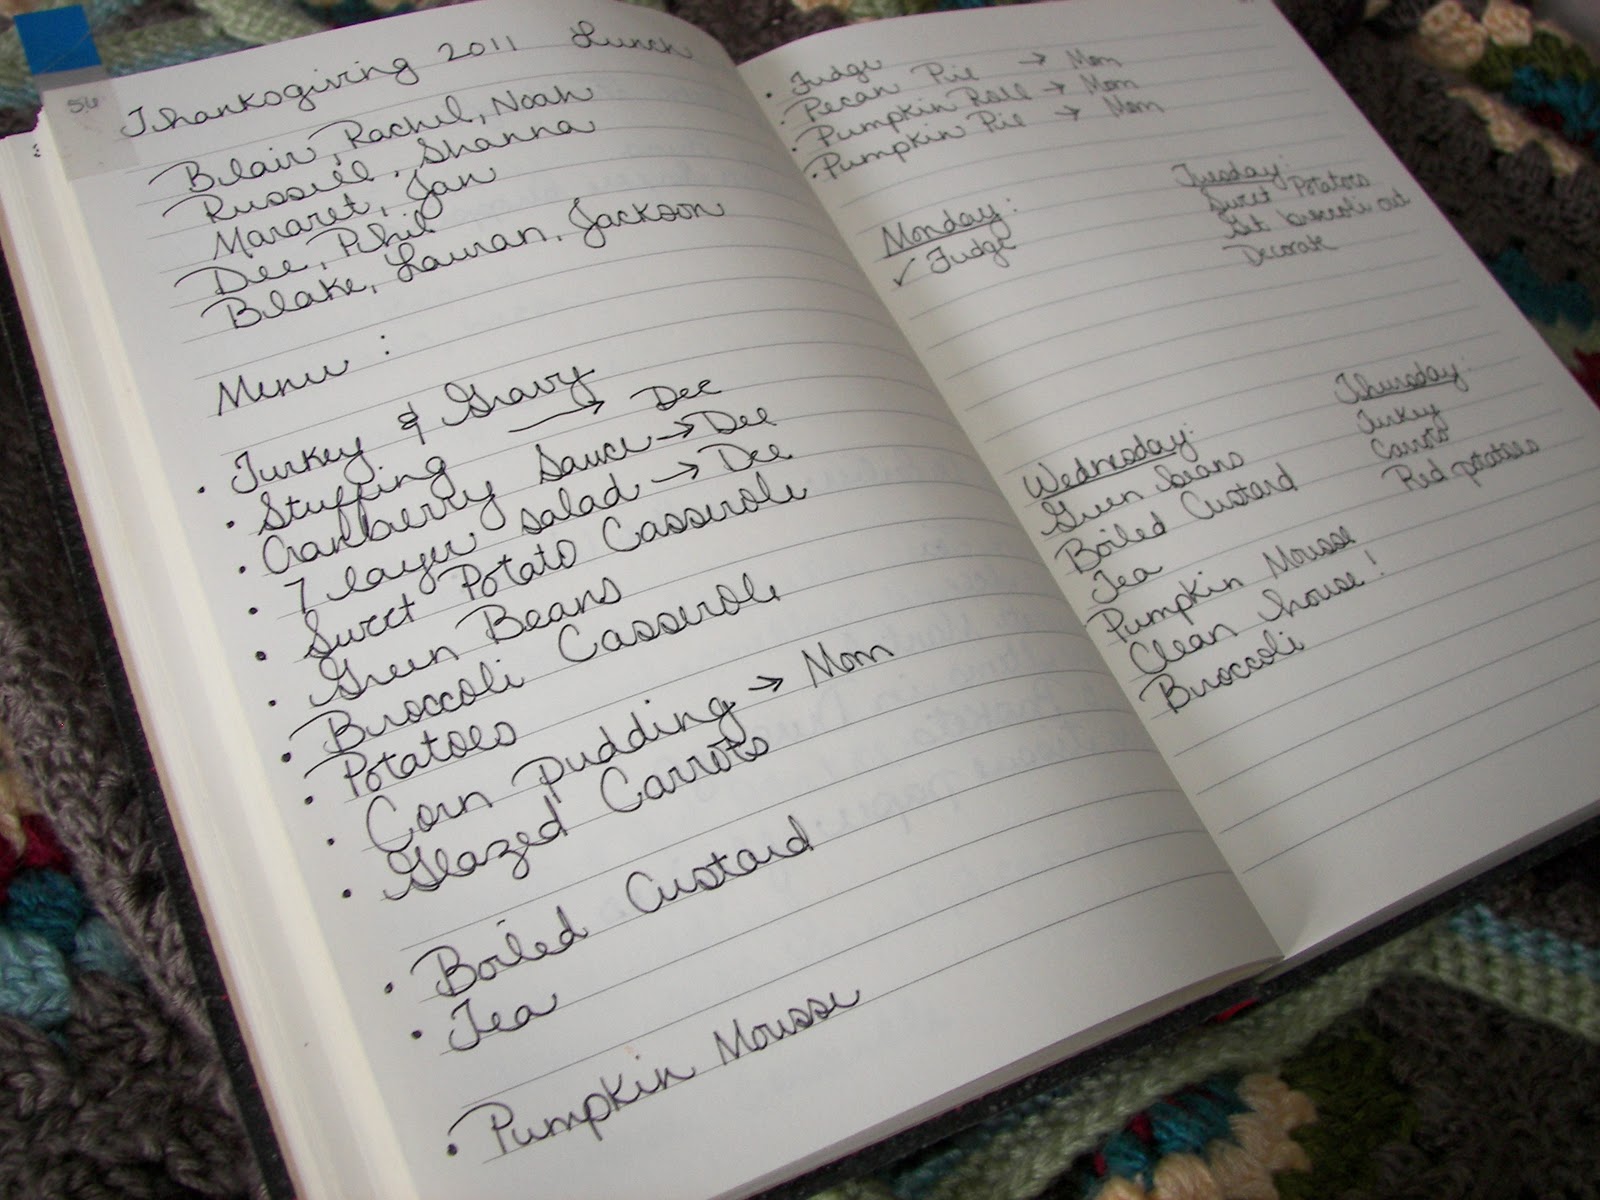 54
Thanksgiving 2011 Lunch
Blair, Rachel, Noah
Russell, Shanna
Mararet, Jan
Dee, Phil
Blake, Lauran, Jackson
Menu :
• Turkey & Gravy
• Stuffing → Dee
• Cranberry Sauce → Dee
• 7 layer salad → Dee
• Sweet Potato Casserole
• Green Beans
• Broccoli Casserole
• Potatoes
• Corn pudding → Mom
• Glazed Carrots
• Boiled Custard
• Tea
• Pumpkin Mousse
• Fudge
• Pecan Pie → Mom
• Pumpkin Roll → Mom
• Pumpkin Pie → Mom
Monday:
✓ Fudge
Tuesday:
Sweet Potatoes
Get broccoli out
Decorate
Wednesday:
Green beans
Boiled Custard
Tea
Pumpkin Mousse
Clean house!
Broccoli
Thursday:
Turkey
Carrots
Red potatoes